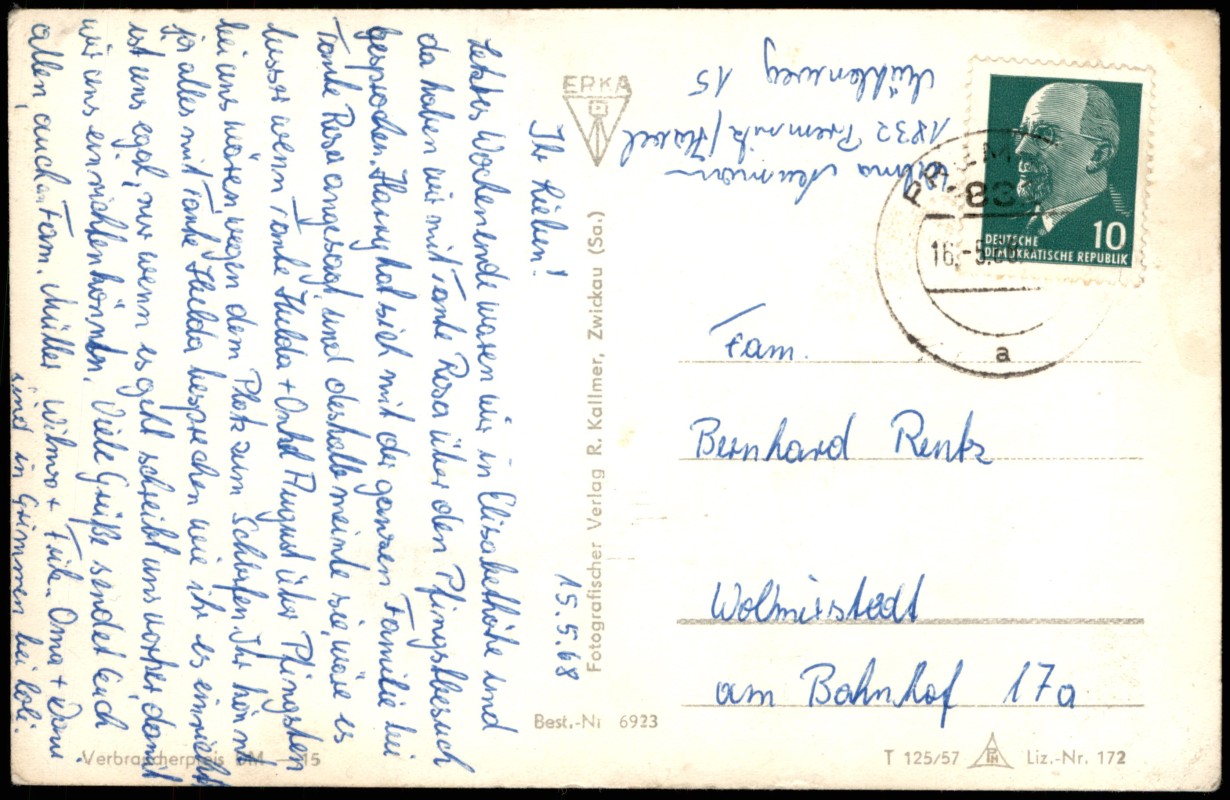 15.5.68
Ihr Lieben!
Letztes Wochenende waren wir in Elisabethhöhe und
da haben wir mit Tante Rosa über den Pfingstbesuch
gesprochen. Harry hat sich mit der ganzen Familie bei
Tante Rosa angesagt und deshalb meinte sie, wäre es
besser wenn Tante Hulda + Onkel August über Pfingsten
bei uns wären wegen dem Platz zum Schlafen. Ihr könnt
ja alles mit Tante Hulda besprechen wie ihr es einricht
ist uns egal, nur wenn es geht schreibt uns vorher, damit
wir uns einrichten könnten. Viele Grüße sendet Euch
allen, auch Fam. Müller Wilma + Oma +
sind in Grimmen bei
ERKA
Fotografischer Verlag R. Kallmer, Zwickau (Sa.)
Best.-Nr 6923
Verbraucherpreis DM —.15
Wilma Neumann
1832 Premnitz/Havel
Mühlenweg 15
PREMNITZ
183
16.-5.68
a
10
DEUTSCHE
DEMOKRATISCHE REPUBLIK
Fam.
Bernhard Rentz
Wolmirstedt
am Bahnhof 17a
T 125/57
Liz.-Nr. 172